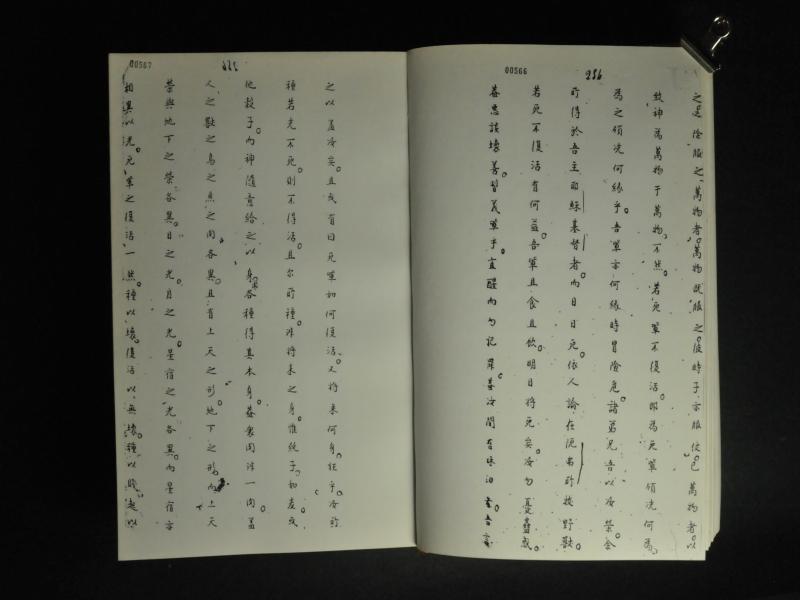 00566
286
之是除服之萬物者萬物既服之彼時子亦服使已萬物者以
致神為萬物于萬物不然若死輩不復活即為死輩領洗何為
為之領洗何緣乎吾輩亦何緣時冒險危諸弟兄吾以汝榮余
所得於吾主耶穌基督者而日日死依人論在厄弗所拔野獸
若死不復活有何益吾輩且食且飲明日將死矣汝勿憂蠱惑
蓋惡談壞善習義輩乎宜醒而勿犯罪蓋汝間有昧神者吾言
00567
之以羞汝矣且或有曰死輩如何復活又將來何身狂乎汝所
種若先不死則不得活且尔所種非將來之身惟紇子初麦或
他穀子而神隨意給之以身各種得其本身蓋衆肉非一肉蓋
人之獸之鳥之魚之肉各異且有上天之形地下之形而上天
榮與地下之榮各異日之光月之光星宿之光各異而星宿亦
相異以光死輩之復活一然種以壞復活以無壞種以賤起以